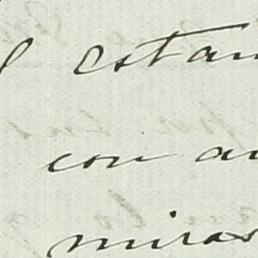 estan
con a
miras